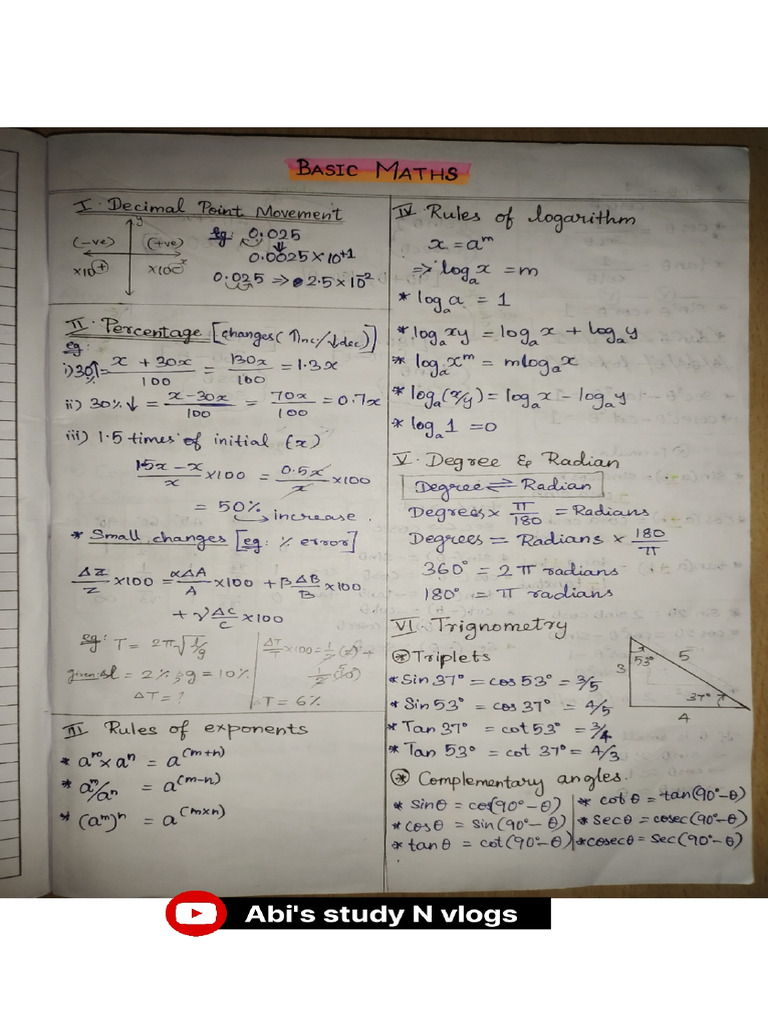 BASIC MATHS
I. Decimal Point Movement
y
(-ve) (+ve)
x
×10⊕ ×10⊖
Eg: 0.025
0.0025 × 10⁺¹
0.025 ⇒ 2.5 × 10⁻²
II. Percentage [changes (↑inc/↓dec)]
eg:
i) 30%↑ = x + 30x/100 = 130x/100 = 1.3x
ii) 30% ↓ = x - 30x/100 = 70x/100 = 0.7x
iii) 1.5 times of initial (x)
1.5x - x/x × 100 = 0.5x/x × 100
= 50%
→ increase.
* Small changes [eg: % error]
ΔZ/Z × 100 = αΔA/A × 100 + βΔB/B × 100
+ γΔC/C × 100
eg: T = 2π√l/g
given: Δl = 2% ; g = 10%
ΔT = ?
ΔT/T × 100 = 1/2 (2) +
1/2 (10)
T = 6%
III Rules of exponents
* aᵐ × aⁿ = a^(m+n)
* aᵐ/aⁿ = a^(m-n)
* (aᵐ)ⁿ = a^(m×n)
IV. Rules of logarithm
x = aᵐ
⇒ logₐx = m
* logₐa = 1
* logₐxy = logₐx + logₐy
* logₐxᵐ = mlogₐx
* logₐ(x/y) = logₐx - logₐy
* logₐ1 = 0
V. Degree & Radian
Degree ⇌ Radian
Degrees × π/180 = Radians
Degrees = Radians × 180/π
360° = 2π radians
180° = π radians
VI. Trignometry
⊛ Triplets
* Sin 37° = cos 53° = 3/5
* Sin 53° = cos 37° = 4/5
* Tan 37° = cot 53° = 3/4
* Tan 53° = cot 37° = 4/3
53°
3
5
37°
4
⊛ Complementary angles.
* sinθ = cos(90°-θ)
* cosθ = sin(90°-θ)
* tanθ = cot(90°-θ)
* cotθ = tan(90°-θ)
* secθ = cosec(90°-θ)
* cosecθ = sec(90°-θ)
Abi's study N vlogs